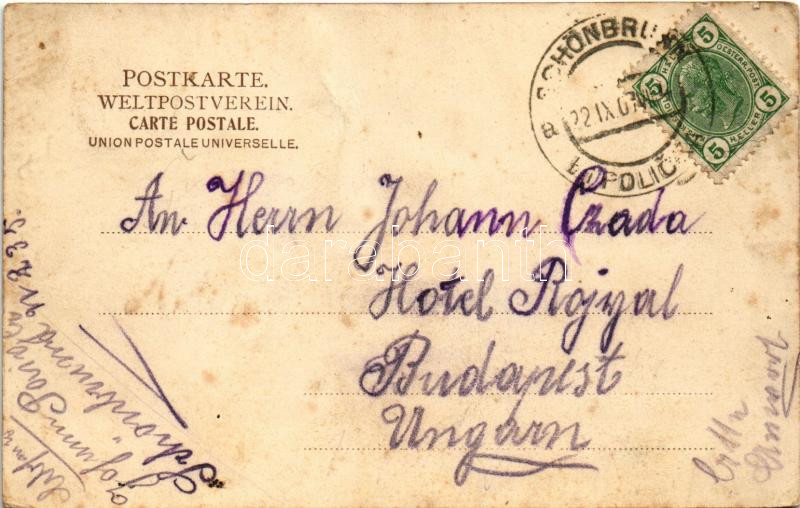 POSTKARTE.
WELTPOSTVEREIN.
CARTE POSTALE.
UNION POSTALE UNIVERSELLE.
SCHÖNBRU
22 IX 0
POLIČ
a
5 5 5 5
HELLER
An Herrn Johann Czada
Hotel Rojyal
Budapest
Ungarn
Schönbrunn
darabanth